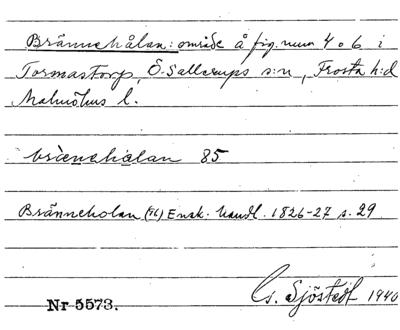 Brännehålan: område å fig. num 4 o 6 i
Tormastorp, Ö. Sallerups s:n, Frosta h:d
Malmöhus l.
brænehålan 85
Bränneholan (76) Ensk. handl. 1826-27 s. 29
G. Sjöstedt 1940
Nr 5573.